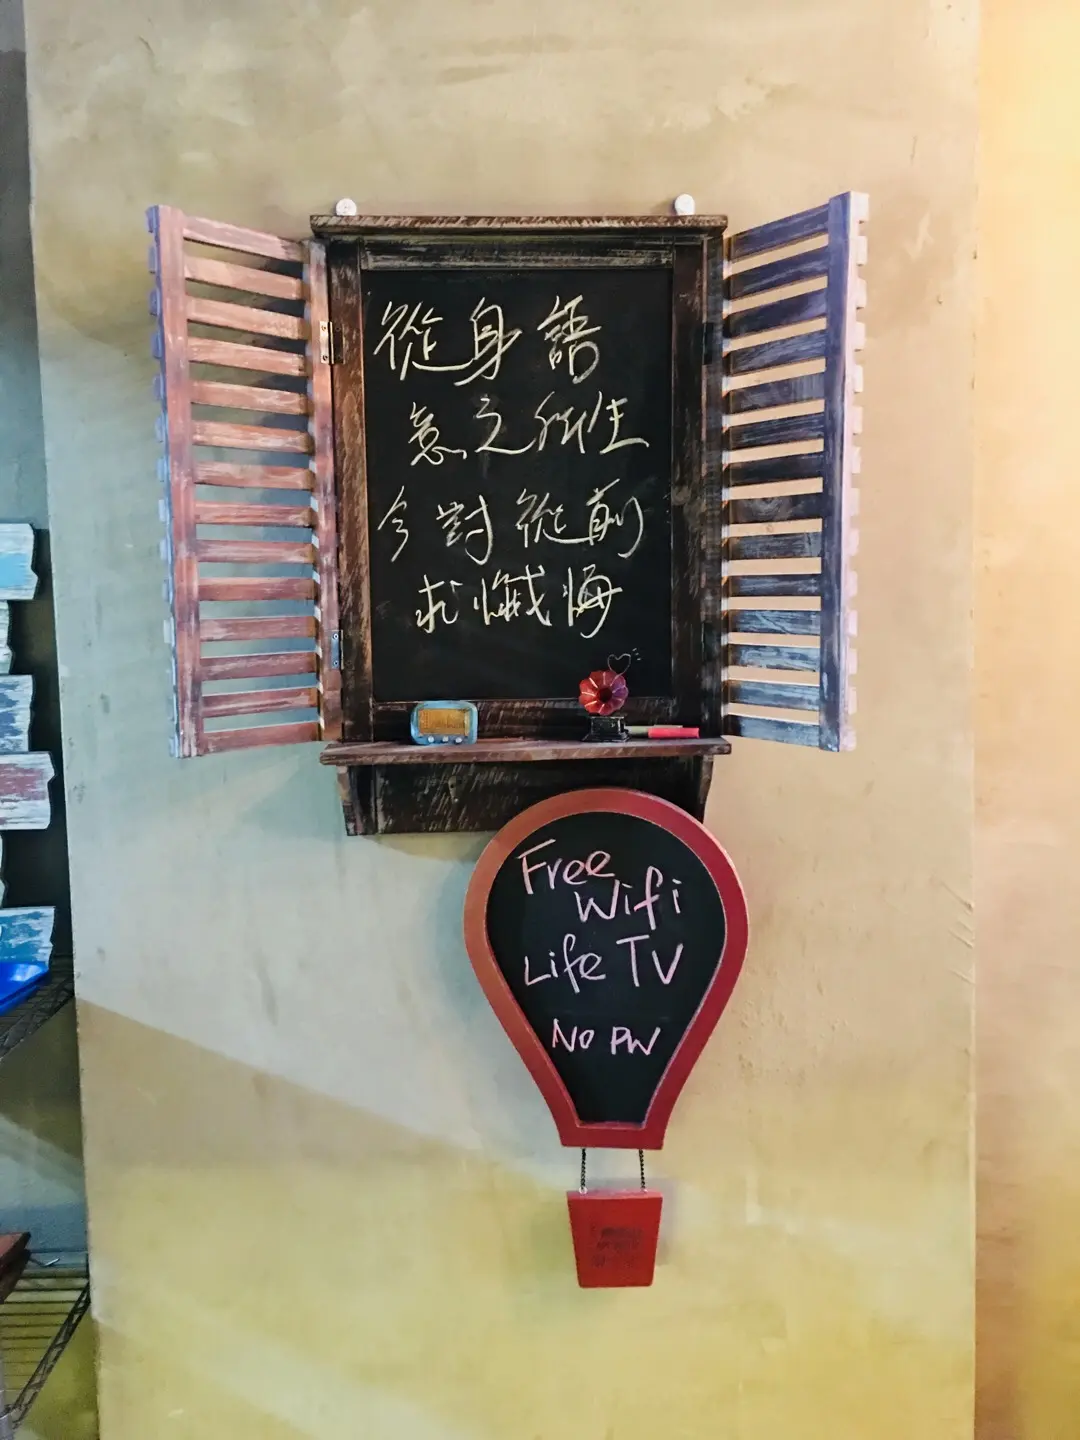 從身語
意之所生
今對從前
求懺悔
Free
Wifi
Life TV
NO PW